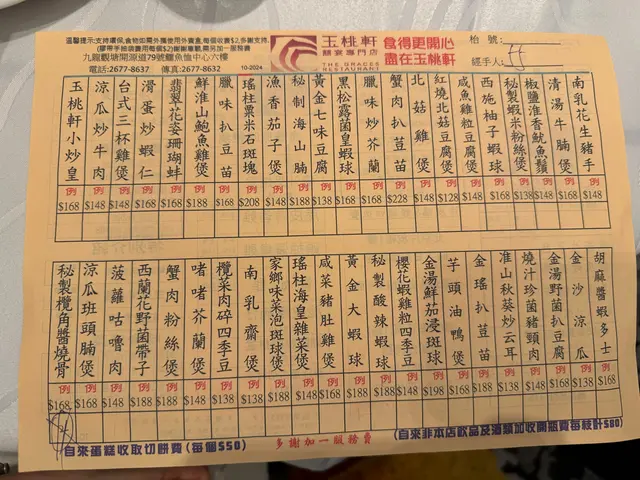 溫馨提示:支持環保,食物如需外攜使用外賣盒,每個收費$2,多謝支持.
(膠帶手抽袋費用每個$2)謝謝尊敬,需另加一服務費
九龍觀塘開源道79號鱷魚恤中心六樓
電話:2677-8637 傳真:2677-8632
10-2024
玉桃軒
囍宴專門店
THE GRACES
RESTAURANT
食得更開心
盡在玉桃軒
枱號:
經手人:
玉桃軒小炒皇 例 $168
涼瓜炒牛肉 例 $148
台式三杯雞煲 例 $148
滑蛋炒蝦仁 例 $168
翡翠花姿珊瑚蚌 例 $168
鮮淮山鮑魚雞煲 例 $188
臘味扒豆苗 例 $168
瑤柱粟米石斑塊 例 $208
漁香茄子煲 例 $148
秘制海山腩 例 $188
黃金七味豆腐 例 $138
黑松露菌皇蝦球 例 $168
臘味炒芥蘭 例 $168
蟹肉扒豆苗 例 $228
北菇雞煲 例 $148
紅燒北菇豆腐煲 例 $128
咸魚雞粒豆腐煲 例 $148
西施柚子蝦球 例 $168
秘製蝦米粉絲煲 例 $148
椒鹽淮香魷魚鬚 例 $148
清湯牛腩煲 例 $168
南乳花生豬手 例 $148
秘製欖角醬燒骨 例 $168
涼瓜班頭腩煲 例 $168
菠蘿咕嚕肉 例 $148
西蘭花野菌帶子 例 $188
蟹肉粉絲煲 例 $188
啫啫芥蘭煲 例 $148
欖菜肉碎四季豆 例 $138
南乳齋煲 例 $138
家鄉味菜泡斑球 例 $188
瑤柱海皇雜菜煲 例 $168
咸菜豬肚雞煲 例 $168
黃金大蝦球 例 $168
秘製酸辣蝦球 例 $168
櫻花蝦雞粒四季豆 例 $148
金湯鮮茄浸斑球 例 $198
芋頭油鴨煲 例 $168
金瑤扒荳苗 例 $188
淮山秋葵炒云耳 例 $138
燒汁珍菌豬頸肉 例 $188
金湯野菌扒豆腐 例 $138
金沙涼瓜 例 $138
胡麻醬蝦多士 例 $168
自來蛋糕收取切餅費(每個$50)
多謝加一服務費
(自來非本店飲品及酒類加收開瓶費每枝計$80)